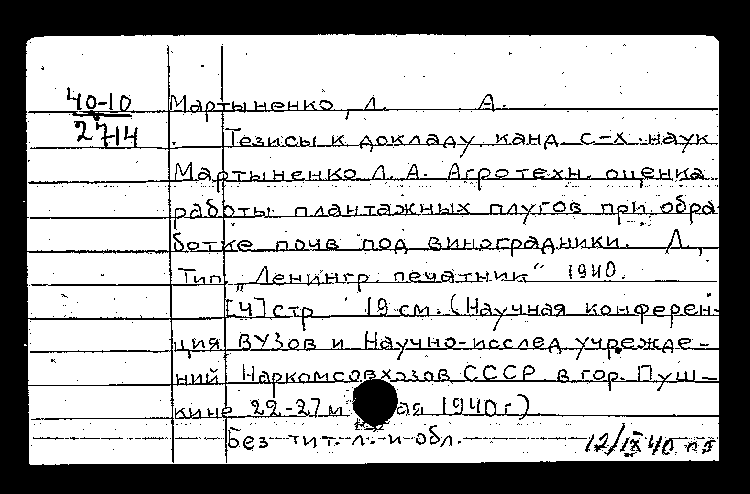 40-10
2714
Мартыненко, Л. А.
Тезисы к докладу канд. с-х. наук
Мартыненко Л. А. Агротехн. оценка
работы плантажных плугов при обра-
ботке почв под виноградники. Л.,
Тип. „Ленингр. печатник“ 1940.
[4] стр 19 см. (Научная конферен-
ция ВУЗов и Научно-исслед. учрежде-
ний Наркомсовхозов СССР в гор. Пуш-
кине 22-27 мая 1940 г)
Без тит. л. и обл.
12/IX 40